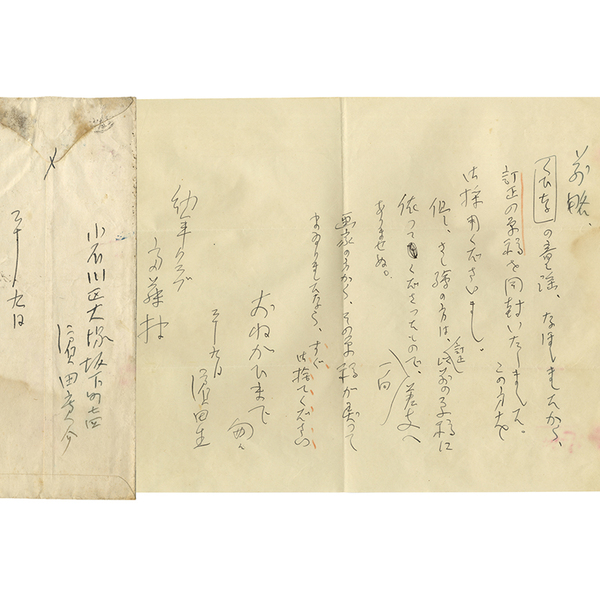 前略、
の童謡、なほしましたから、
訂正の原稿を同封いたしました。この方を
御採用くださいまし。
但し、さし絵の方は、訂正以前の原稿に
依ってくださったので、差支へ
ありませぬ。
画家の方から、その原稿が戻って
まゐりましたなら、すぐ
御捨てください
おねがひまで
匆々
三十一九日
濱田生
幼年クラブ
斎藤様
小石川区大塚坂下町
濱田廣介
三十一九日